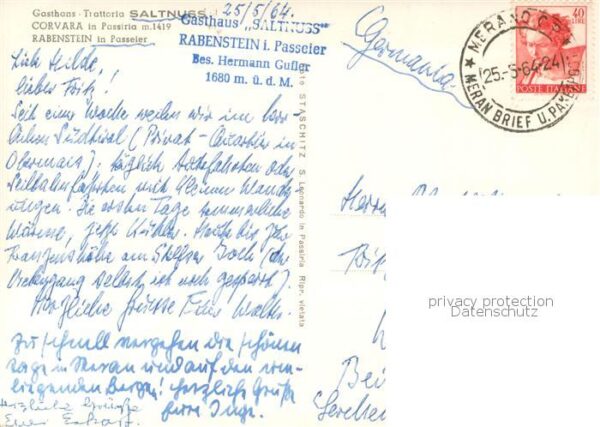 Gasthaus - Trattoria SALTNUSS
CORVARA in Passiria m.1419
RABENSTEIN in Passeier
25/5/64.
Gasthaus „SALTNUSS“
RABENSTEIN i. Passeier
Bes. Hermann Gufler
1680 m. ü. d. M.
Germania
MERANO C.P.
25.-5.64-24
MERAN BRIEF U. PA
40
LIRE
POSTE ITALIANE
Liebe Hilde,
lieber Fritz!
Seit einer Woche weilen wir im herr-
lichen Südtirol (Privat-Quartier in
Obermais). Täglich Autofahrten oder
Seilbahnfahrten mit kleinen Wande-
rungen. Die ersten Tage sommerliche
Wärme, jetzt kühler. Heute bis zur
Franzenshöhe am Stilfser Joch (der
Übergang selbst ist noch gesperrt).
Herzliche Grüsse Euer Walter.
Zu schnell vergehen die schönen
Tage in Meran und auf den um-
liegenden Bergen! Herzliche Grüße
Eure Inge.
Herzliche Grüße
Euer
STASCHITZ S. Leonardo in Passiria Ripr. vietata
Herrn
privacy protection
Datenschutz